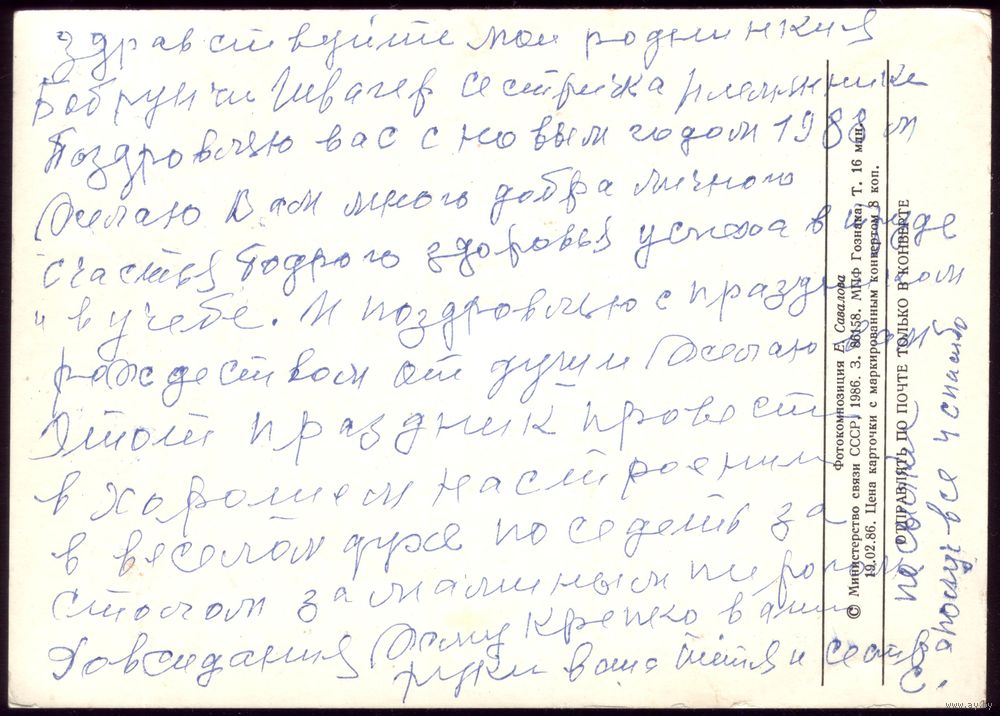 здравствуйте мои родненкия
Бобруичи Швагер сестричка племянники
Поздровляю вас с новым годом 1988 м
Желаю Вам много добра личного
счастья бодрого здоровья успеха в труде
и в учебе. И поздровлю с праздником
рождеством от души Желаю вам
Этот праздник провести
в хорошем настроении
в веселом духе поседеть за
столом за маминым пирогом
Досвидания Жму крепко ваши
руки ваша тётя и сестра
получ все и спасибо
за
Фотокомпозиция Е. Савалова
© Министерство связи СССР, 1986. З. 86158. МПФ Гознака. Т. 16 млн.
19.02.86. Цена карточки с маркированным конвертом 8 коп.
ОТПРАВЛЯТЬ ПО ПОЧТЕ ТОЛЬКО В КОНВЕРТЕ
www.ay.by